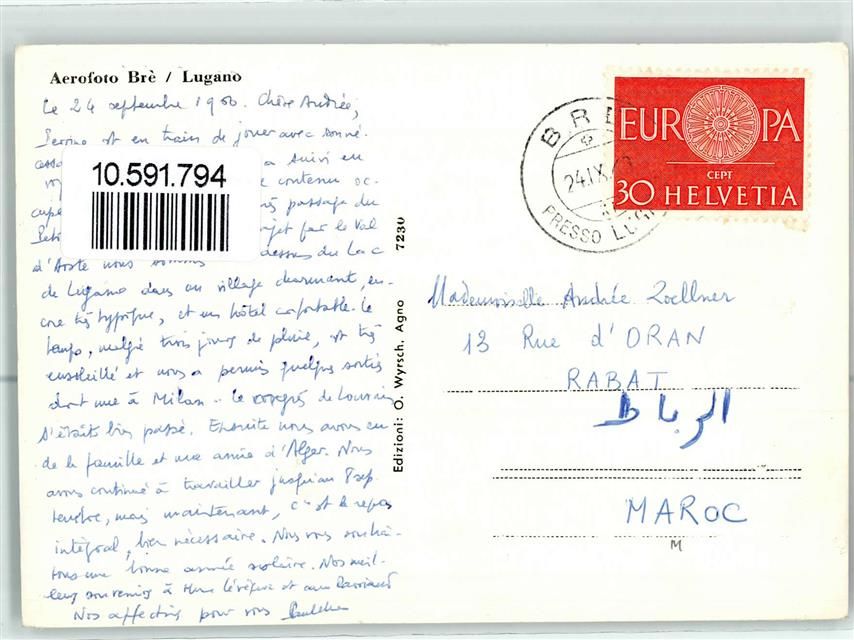 Aerofoto Brè / Lugano
Le 24 septembre 1960. Chère Andrée,
est en train de jouer avec
a suivi en
10.591.794
contenu oc-
passage du
Petit par le Val
d'Aoste nous sommes dessus du Lac
de Lugano dans un village charmant, en-
core très typique, et un hôtel confortable. Le
temps, malgré trois jours de pluie, est très
ensoleillé et nous a permis quelques sorties
dont une à Milan. Le congrès de Louvain
s'était bien passé. Ensuite nous avons eu
de la famille et une amie d'Alger. Nous
avons continué à travailler jusqu'au 8 sep-
tembre, mais maintenant, c'est le repos
intégral, bien nécessaire. Nous vous souhai-
tons une bonne année scolaire. Nos meil-
leurs souvenirs à Mme et
Nos affections pour vous
Edizioni: O. Wyrsch, Agno 7230
BRÈ
24.IX.60
PRESSO LUGANO
EUROPA
CEPT
30 HELVETIA
Mademoiselle Andrée Zoellner
13 Rue d'ORAN
RABAT
الرباط
MAROC
M